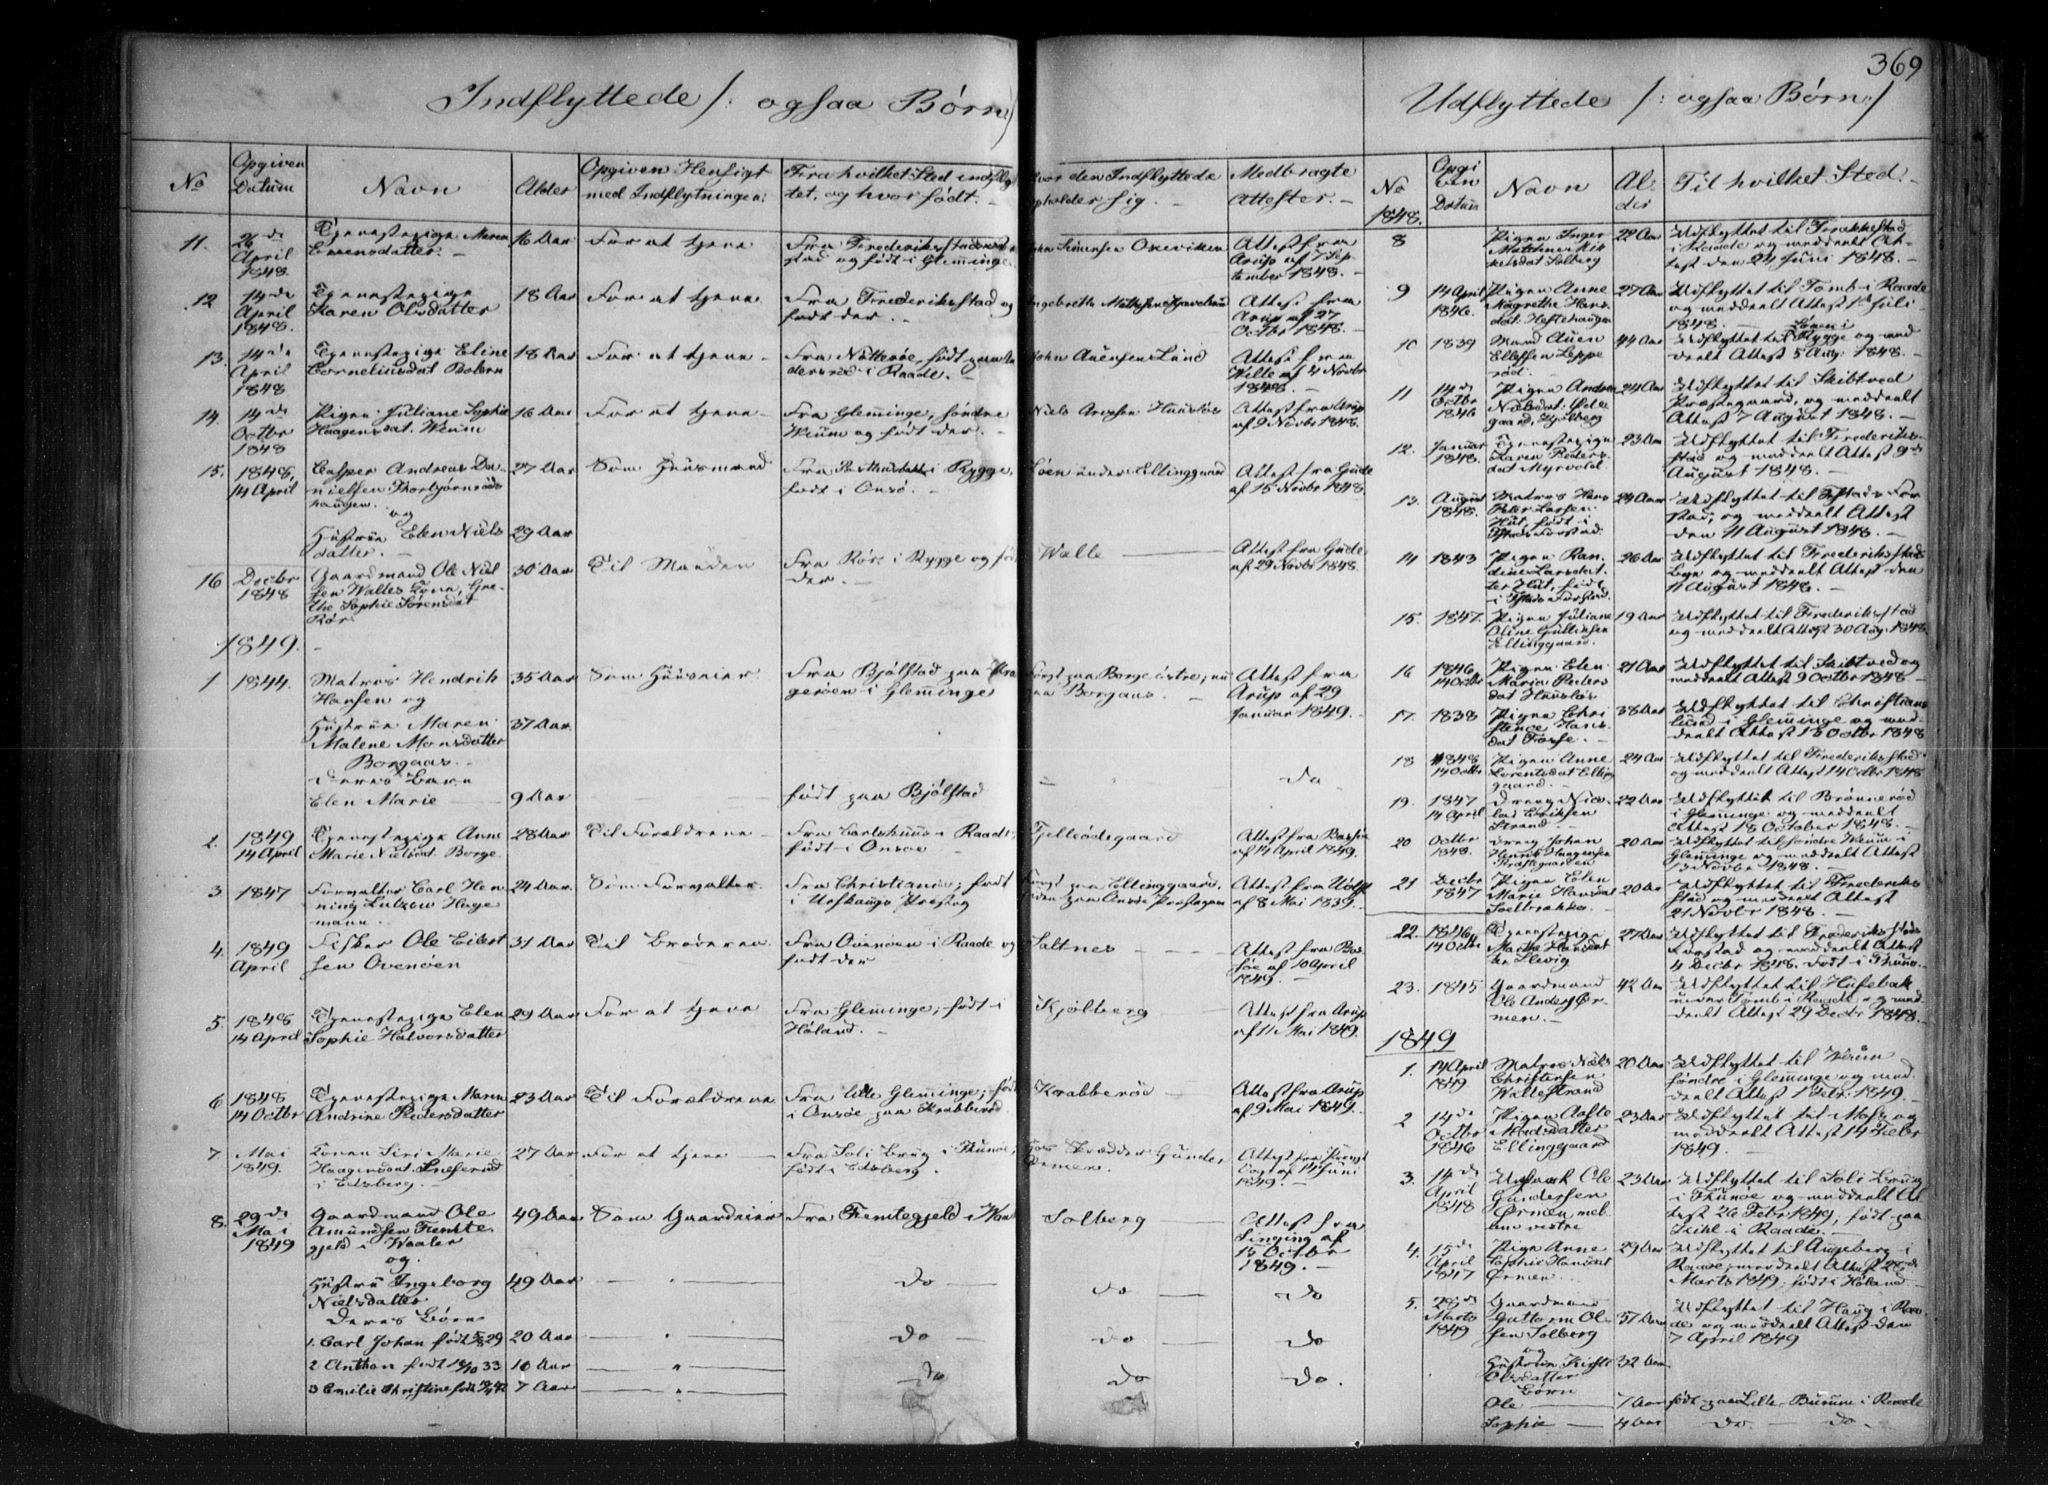 369
Indflyttede /: ogsaa Børn /
No
Opgiven Datum
Navn
Alder
Opgiven Hensigt med Indflytningen.
Fra hvilket Sted indflyttet, og hvor født.
Hvor den Indflyttede opholder sig.
Medbragte Attester.
11.
26de April 1848.
Tjenestepige Maren Evensdatter.
16 Aar
For at tjene
og født i Glemminge
Attest fra Arup af 7 September 1848.
12.
14de April 1848.
Tjenestepige Karen Olsdatter
18 Aar
For at tjene
Fra Frederiksstad og født der.
Attest fra Arup af 27 Octbr 1848.
13.
14de April 1848
Tjenestepige Eline Corneliusdat
18 Aar
For at tjene
født paa i Raade.
John Auensen Lund
Attest fra Wille af 4 Novbr 1848.
14.
14de Octbr 1848
Pigen Juliane Sophie Haagensdat. Weum
16 Aar
For at tjene
Fra Glemminge, søndre Weum og født der.
Niels
Attest fra Arup af 9 Novbr 1848.
15.
1848, 14 April
Casper Andreas Danielsen Thorbjørnrødshaugen.
og
Hustrue Elen Nielsdatter.
27 Aar
29 Aar
Som Huusmand
i Rygge, født i Onsø.
Løen under Ellinggaard
Attest fra Gude af 15 Novbr 1848.
16
Decbr 1848
Gaardmand Ole Nielsen Walles Kone, Grethe Sophie Sørensdat Rør
30 Aar
Til Manden
Fra Rør i Rygge og født der.
Walle
Attest fra Gude af 29 Novbr 1848.
1849.
1
1844.
Matros Hendrik Hansen og
Hustrue Maren Malene Monsdatter Borgaas.
deres Barn
Elen Marie
35 Aar
37 Aar
9 Aar
Som Huuseier
Fra Bjølstad paa Kragerøen i Glemminge
født paa Bjølstad
Først paa Borge østre, nu paa Borgaas.
Attest fra Arup af 29 Januar 1849.
do
2.
1849 14 April
Tjenestepige Anne Marie Nielsdat Borge
28 Aar
Til Forældrene
Fra Carlshuus i Raade, født i Onsøe
Attest fra Bassøe af 14 April 1849.
3
1847
Forvalter Carl Henning Lützow Hagemann.
24 Aar
Som Forvalter.
Fra Christiania, født i Urskougs Præsteg
Først paa Ellinggaard, siden paa Onsøe Præstegaard
af 8 Mai 1839.
4.
1849 April
Fisker Ole Eilertsen Ovenøen
31 Aar
Til Broderen
Fra Ovenøen i Raade og født der
Saltnes
Attest fra Bassøe af 10 April 1849.
5.
1848 14 April
Tjenestepige Elen Sophie Halvorsdatter
29 Aar
For at tjene
Fra Glemminge, født i Høland.
Kjølberg
Attest fra Arup af 11 Mai 1849.
6
1848 14 Octbr
Tjenestepige Maren Andrine Pedersdatter
23 Aar
Til Forældrene
Fra lille Glemminge, født i Onsøe paa Krabberød.
Krabberød
Attest fra Arup af 9 Mai 1849.
7
Mai 1849.
Konen Siri Marie Haagensdat i Edsberg.
27 Aar
For at tjene
Fra Soli Brug i Thunøe, født i Edsberg.
Attest fra af 14 Juni 1849.
8.
29de Mai 1849
Gaardmand Ole Amundsen Femtegjeld i Waaler
og
Hustru Ingeborg Nielsdatter
deres Børn
1. Carl Johan født 29
2 Anthon født 33
3 Emilie Christine født
49 Aar
49 Aar
20 Aar
7 Aar
Som Gaardeier
Fra Femtegjeld i
Solberg
Attest fra Singing af 15 Octbr 1849.
do do do
do do do
do do do
Udflyttede /: ogsaa Børn /
No
Opgiven Datum
Navn
Alder
Til hvilket Sted.
1848.
8
Pigen Inger Solberg
22 Aar
Udflyttet til Trøkkestad og meddeelt Attest den 24 Juni 1848.
9
14 April 1846.
Pigen Anne Magrethe Hansdat. Hestehaugen
27 Aar
Udflyttet til Tomb i Raade og meddeelt Attest 1 Juli 1848.
10
1839
Mand Auen Ellefsen Lepperød.
44 Aar
Udflyttet til Løren i Rygge og meddeelt Attest 5 Aug. 1848.
11
14de Octbr 1846
Pigen Andrea Nielsdat Kjølberg
24 Aar
Udflyttet til Skibtved Præstegaard, og meddeelt Attest 7 August 1848.
12.
Januar 1848.
Tjenestepige Karen Pedersdat Myrvold.
23 Aar
Udflyttet til Frederiksstad og meddeelt Attest 9de August 1848.
13.
August 1848.
Matros Hans Peter Larsen født i
24 Aar
Udflyttet til Forstad, og meddeelt Attest den 11 August 1848.
14
1843
Pigen Randine Larsdatter født i
26 Aar
Udflyttet til Frederiksstads Byen og meddeelt Attest den 11 August 1848.
15.
1847.
Pigen Juliane Oline Gulliksen Ellinggaard.
19 Aar
Udflyttet til Frederiksstad og meddeelt Attest 30 Aug. 1848.
16
1846 14 Octbr
Pigen Elen Maria Pedersdat
21 Aar
Udflyttet til Skibtved og meddeelt Attest 9 Octbr 1848
17.
1838
Pigen Christence Hansdat Fosse.
38 Aar
Udflyttet til Christianslund i Glemminge og meddeelt Attest 13 Octbr 1848
18
1848 14 Octbr
Pigen Anne Lorentsdat Ellinggaard.
24 Aar
Udflyttet til Frederiksstad og meddeelt Attest 14 Octbr 1848
19.
1847 14 April
Dreng Nicolai Eriksen Strand
22 Aar
Udflyttet til Brønnerød i Glemminge og meddeelt Attest 18 October 1848.
20
Octbr 1848.
Dreng Johan Henrik Haagensen
20 Aar
Udflyttet til søndre Weum i Glemminge og meddeelt Attest 13 Novbr 1848.
21
Decbr 1847
Pigen Elen Marie Hansdat
20 Aar
Udflyttet til Frederiksstad og meddeelt Attest 21 Novbr 1848.
22.
1846 14 Octbr
Tjenestepige Marthe Hansdatter Slevig
27 Aar
Udflyttet til Frederiksstads Forstad og meddeelt Attest 4 Decbr 1848. født i Thunøe
23.
1845
Gaardmand Ole Anders. Ørmen.
42 Aar
Udflyttet til Husebak under Tomb i Raade og meddeelt Attest 29 Decbr 1848.
1849
1.
14 April 1849
Matros Niels Christensen Wallestrand
20 Aar
Udflyttet til Weum søndre i Glemminge og meddeelt Attest 1 Febr. 1849.
2
14de Octbr 1846
Pigen Aaste Madsdatter Ellinggaard
23 Aar
Udflyttet til Moss og meddeelt Attest 14 Febr 1849.
3.
14de April 1848
Ole Gundersen Ørmen mellem vestre
23 Aar
Udflyttet til Soli Brug i Thunøe og meddeelt Attest 26 Febr 1849, født paa i Raade.
4.
15de April 1847
Pige Anne Sophie Hansdat Ørmen
29 Aar
Udflyttet til Augeberg i Raade, meddeelt Attest Marts 1849, født i Høland
5.
28de Marts 1849
Gaardmand Guttorm Olsen Solberg
og
Hustruen Kirsti Olsdatter
Børn
Ole
Sophie
37 Aar
32 Aar
7 Aar
4 Aar
Udflyttet til Haug i Raade og meddeelt Attest den 7 April 1849
født paa Lille i Raade
do do